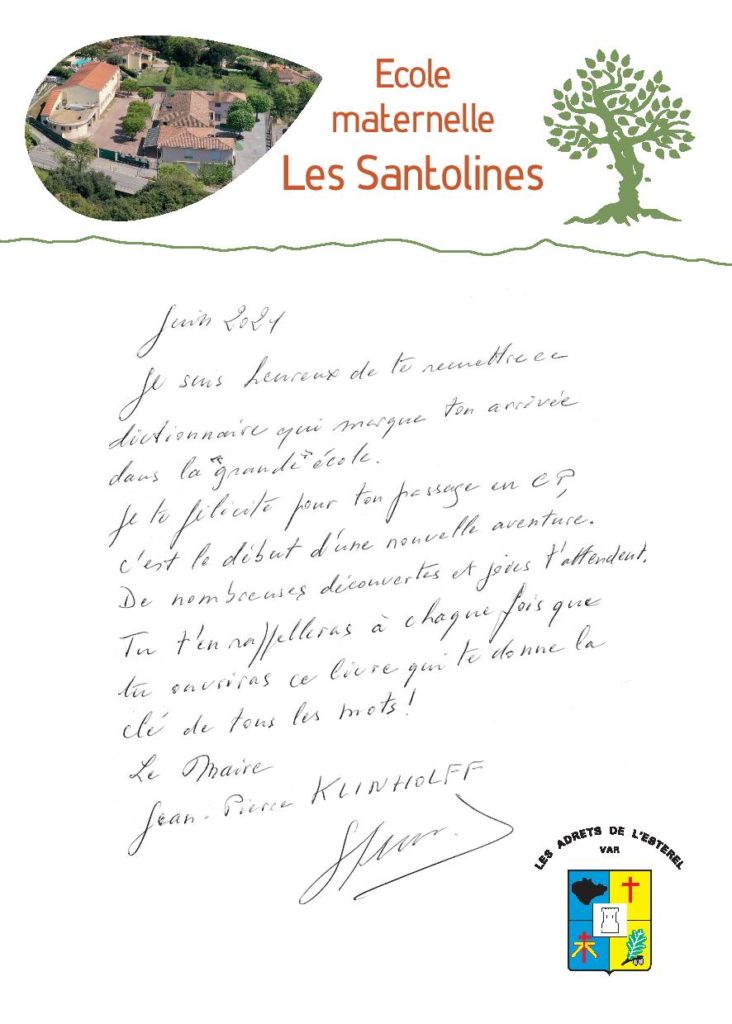 Ecole
maternelle
Les Santolines
Juin 2021
Je suis heureux de te remettre ce
dictionnaire qui marque ton arrivée
dans la "grande" école.
Je te félicite pour ton passage en CP,
c'est le début d'une nouvelle aventure.
De nombreuses découvertes et joies t'attendent.
Tu t'en rappelleras à chaque fois que
tu ouvriras ce livre qui te donne la
clé de tous les mots !
Le Maire
Jean-Pierre KLINHOLFF
LES ADRETS DE L'ESTEREL
VAR